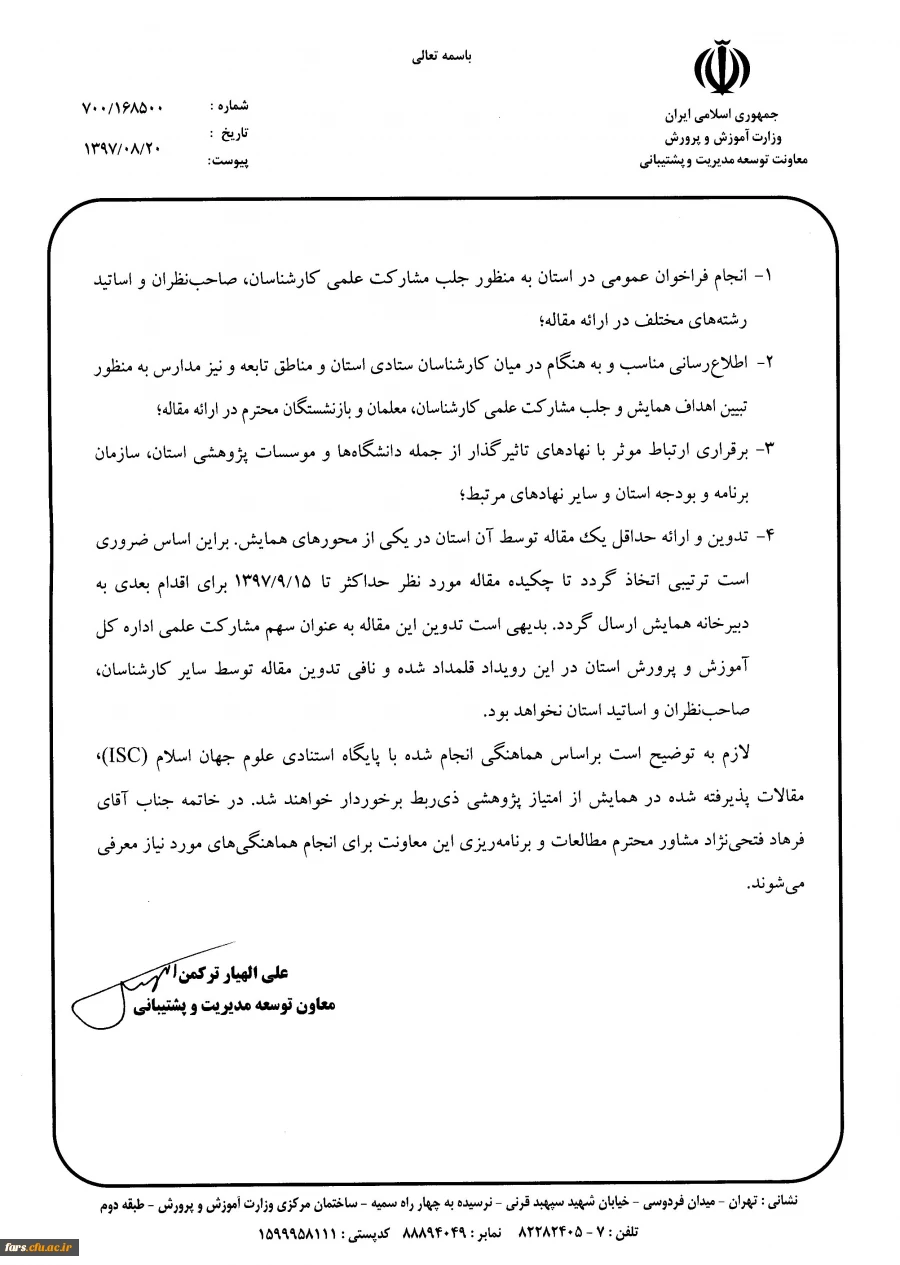 باسمه تعالی
جمهوری اسلامی ایران
وزارت آموزش و پرورش
معاونت توسعه مدیریت و پشتیبانی
شماره : ۷۰۰/۱۶۸۵۰۰
تاریخ : ۱۳۹۷/۰۸/۲۰
پیوست:
۱- انجام فراخوان عمومی در استان به منظور جلب مشارکت علمی کارشناسان، صاحب‌نظران و اساتید
رشته‌های مختلف در ارائه مقاله؛
۲- اطلاع‌رسانی مناسب و به هنگام در میان کارشناسان ستادی استان و مناطق تابعه و نیز مدارس به منظور
تبیین اهداف همایش و جلب مشارکت علمی کارشناسان، معلمان و بازنشستگان محترم در ارائه مقاله؛
۳- برقراری ارتباط موثر با نهادهای تاثیرگذار از جمله دانشگاه‌ها و موسسات پژوهشی استان، سازمان
برنامه و بودجه استان و سایر نهادهای مرتبط؛
۴- تدوین و ارائه حداقل یک مقاله توسط آن استان در یکی از محورهای همایش. براین اساس ضروری
است ترتیبی اتخاذ گردد تا چکیده مقاله مورد نظر حداکثر تا ۱۳۹۷/۹/۱۵ برای اقدام بعدی به
دبیرخانه همایش ارسال گردد. بدیهی است تدوین این مقاله به عنوان سهم مشارکت علمی اداره کل
آموزش و پرورش استان در این رویداد قلمداد شده و نافی تدوین مقاله توسط سایر کارشناسان،
صاحب‌نظران و اساتید استان نخواهد بود.
لازم به توضیح است براساس هماهنگی انجام شده با پایگاه استنادی علوم جهان اسلام (ISC)،
مقالات پذیرفته شده در همایش از امتیاز پژوهشی ذی‌ربط برخوردار خواهند شد. در خاتمه جناب آقای
فرهاد فتحی‌نژاد مشاور محترم مطالعات و برنامه‌ریزی این معاونت برای انجام هماهنگی‌های مورد نیاز معرفی
می‌شوند.
علی الهیار ترکمن
معاون توسعه مدیریت و پشتیبانی
نشانی : تهران - میدان فردوسی - خیابان شهید سپهبد قرنی - نرسیده به چهار راه سمیه - ساختمان مرکزی وزارت آموزش و پرورش - طبقه دوم
تلفن : ۷ - ۸۲۲۸۲۴۰۵ نمابر : ۸۸۸۹۴۰۴۹ کدپستی : ۱۵۹۹۹۵۸۱۱۱
fars.cfu.ac.ir